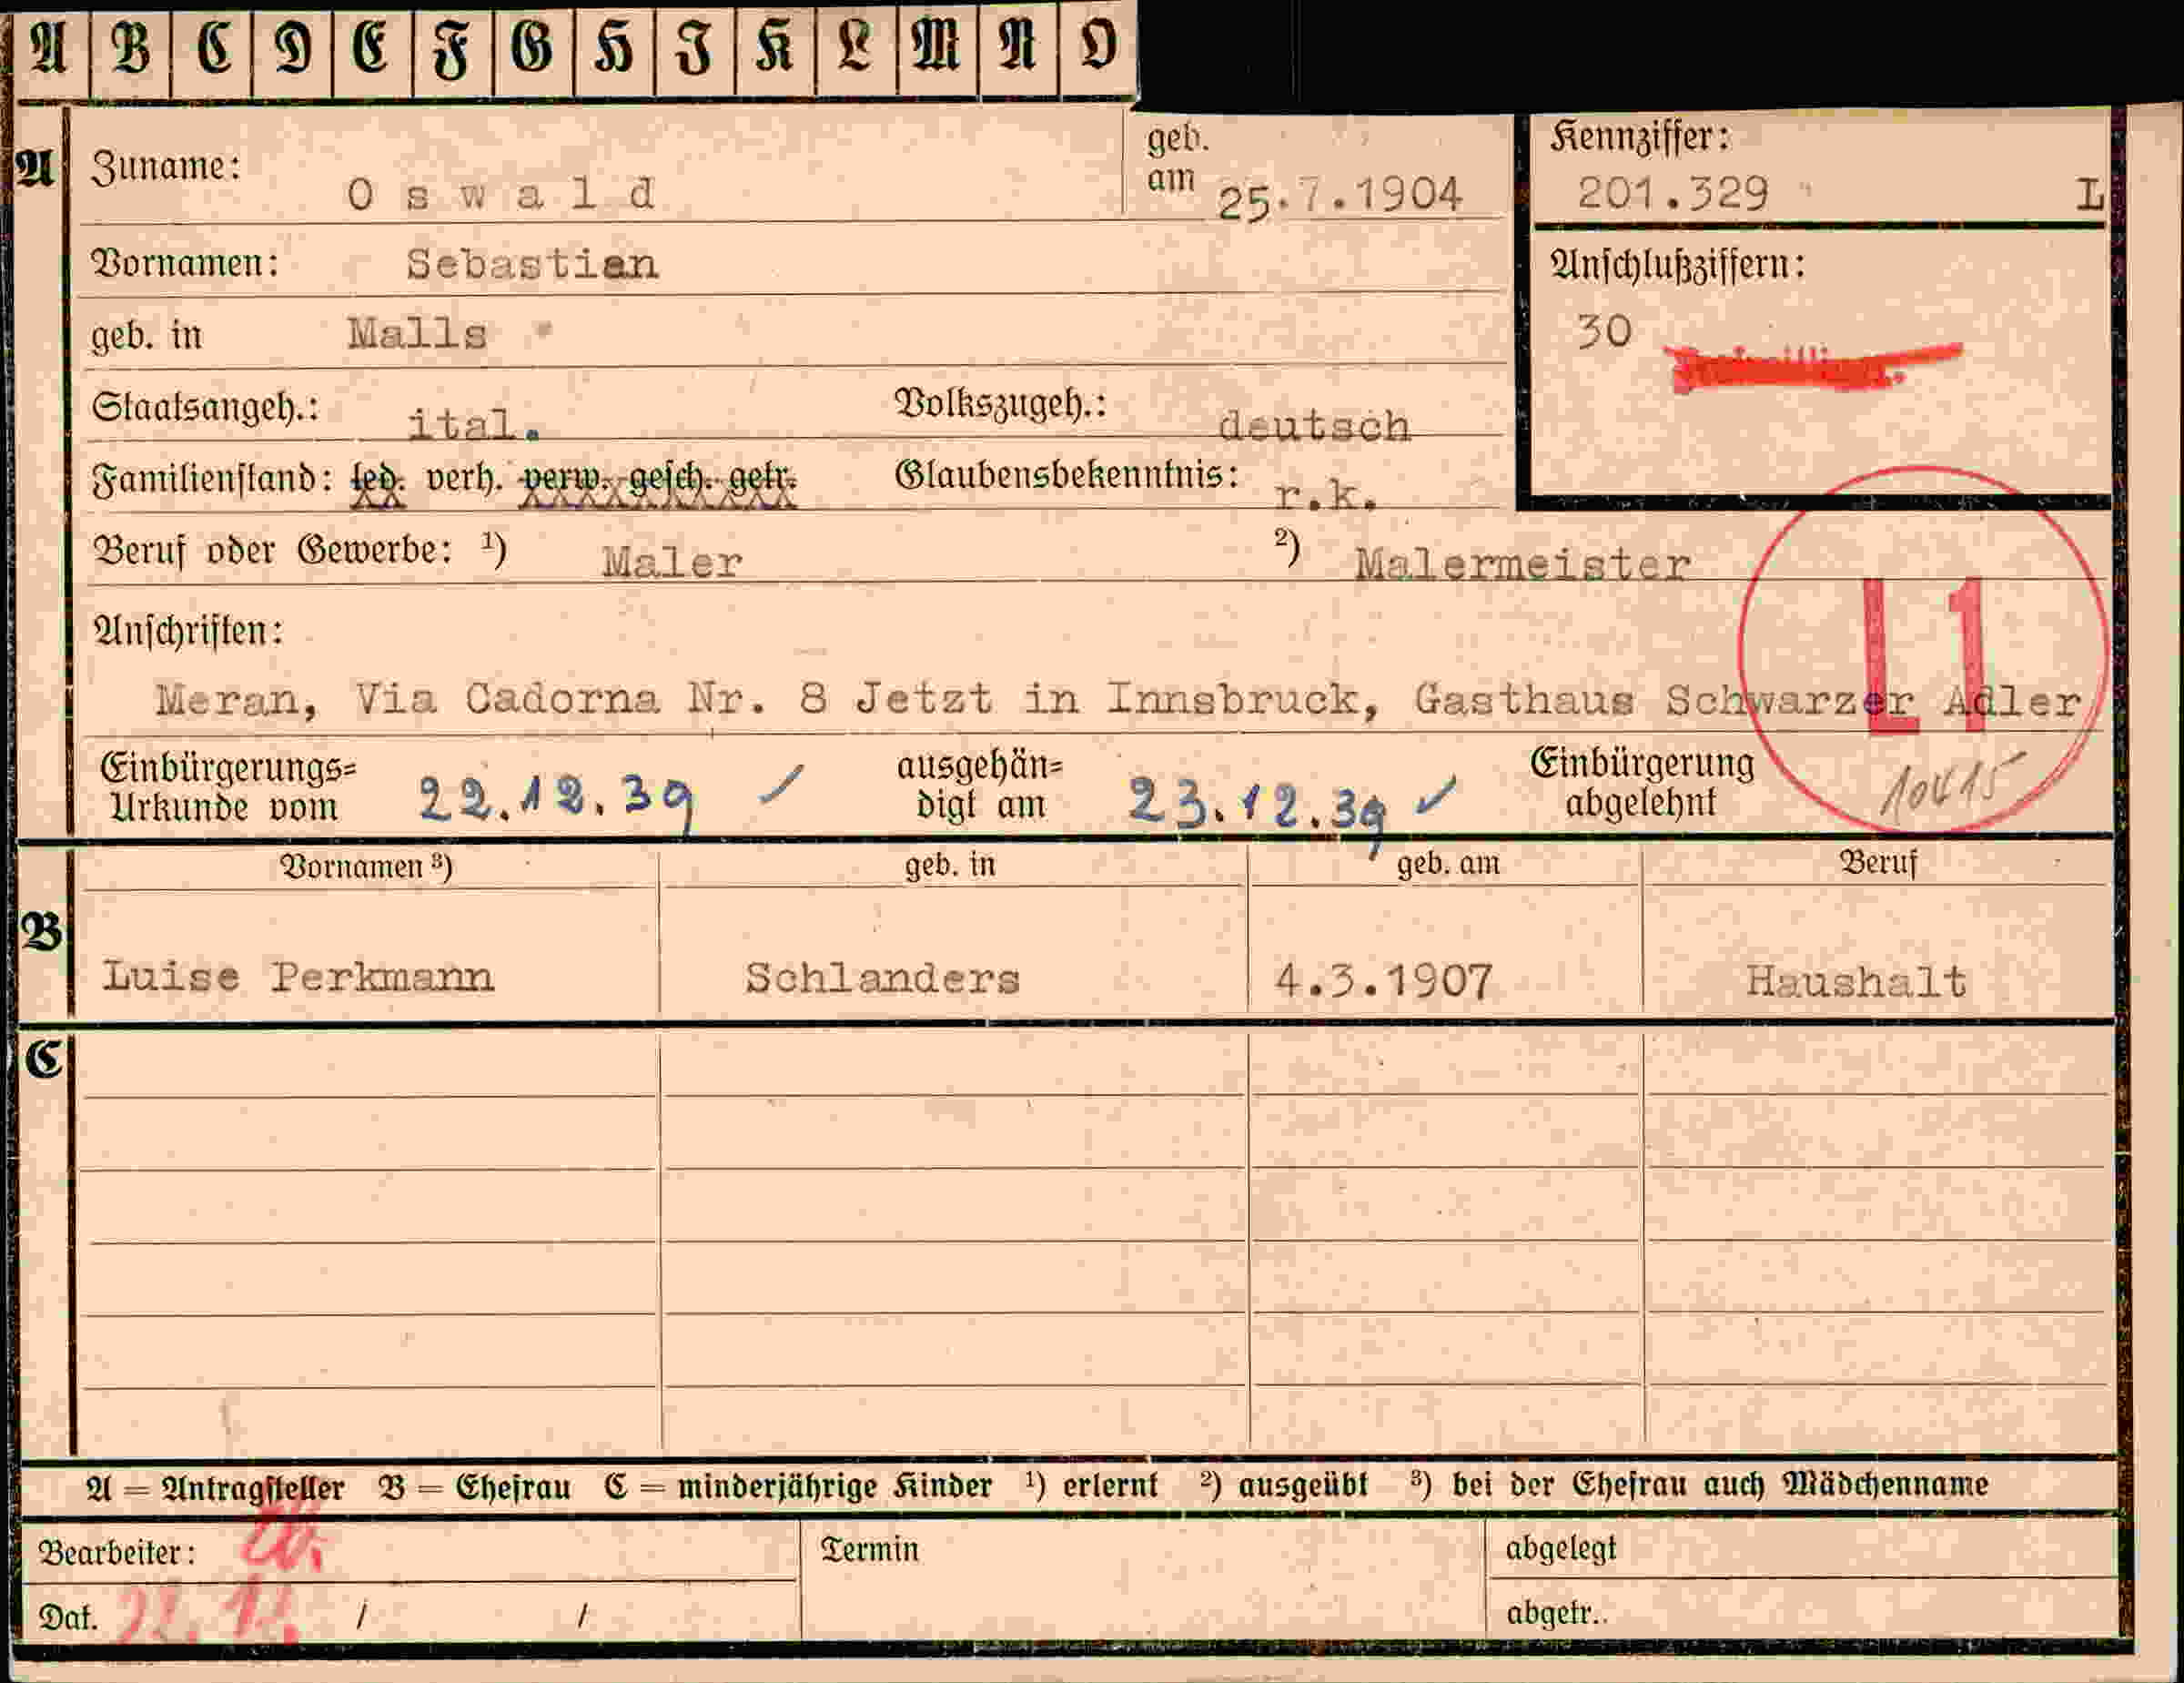 A B C D E F G H I K L M N O
A Zuname: Oswald geb. am 25.7.1904 Kennziffer: 201.329 L
Vornamen: Sebastian Anschlußziffern:
geb. in Malls 30
Staatsangeh.: ital. Volkszugeh.: deutsch
Familienstand: led. verh. verw. gesch. getr. Glaubensbekenntnis: r.k.
Beruf oder Gewerbe: ¹) Maler ²) Malermeister
L1
Anschriften:
Meran, Via Cadorna Nr. 8 Jetzt in Innsbruck, Gasthaus Schwarzer Adler
Einbürgerungs= ausgehän= Einbürgerung
Urkunde vom 22.12.39 ✓ digt am 23.12.39 ✓ abgelehnt
Vornamen ³) geb. in geb. am Beruf
B
Luise Perkmann Schlanders 4.3.1907 Haushalt
C
A = Antragsteller B = Ehefrau C = minderjährige Kinder ¹) erlernt ²) ausgeübt ³) bei der Ehefrau auch Mädchenname
Bearbeiter: Termin abgelegt
Dat. / / abgetr..